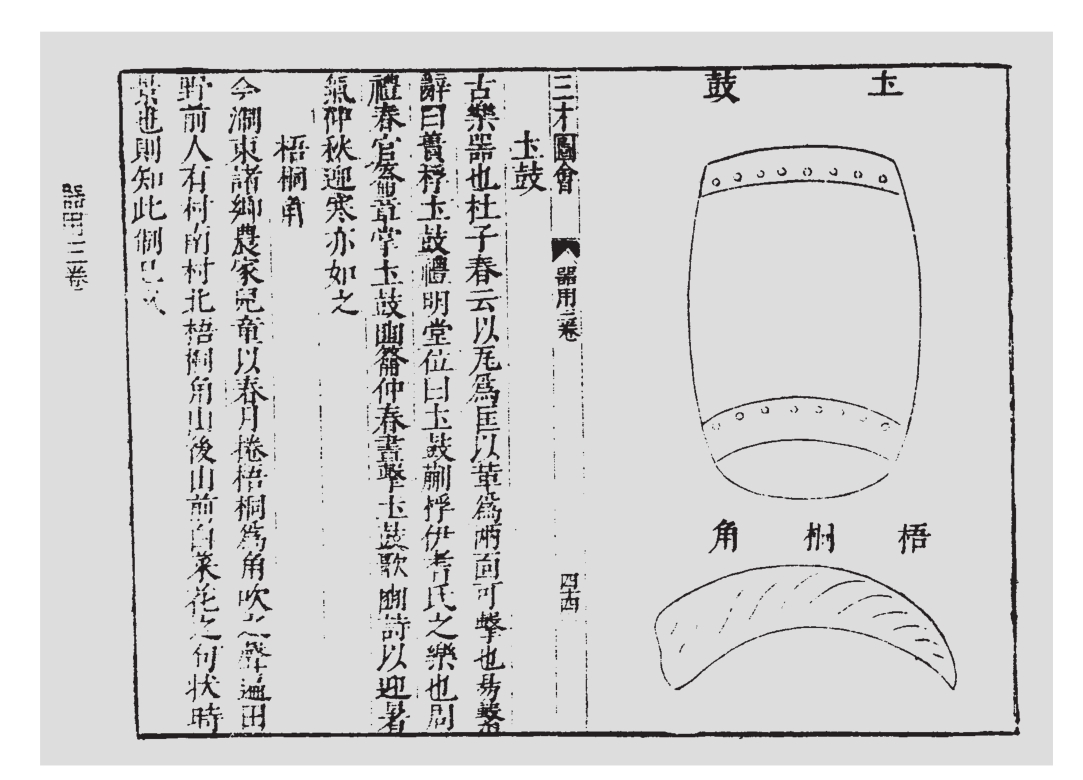 圡鼓
梧桐角
三才圖會
器用三卷
圡鼓
古樂器也杜子春云以瓦爲匡以革爲兩面可擊也易繫
辭曰蕢桴圡鼓禮明堂位曰圡鼓蒯桴伊耆氏之樂也周
禮春官籥章掌圡鼓豳籥仲春晝擊圡鼓歌豳詩以迎暑
氣仲秋迎寒亦如之
梧桐角
今淛東諸鄉農家兒童以春月捲梧桐爲角吹之聲遍田
野前人有村南村北梧桐角山後山前白菜花之句狀時
景也則知此制已久
器用三卷